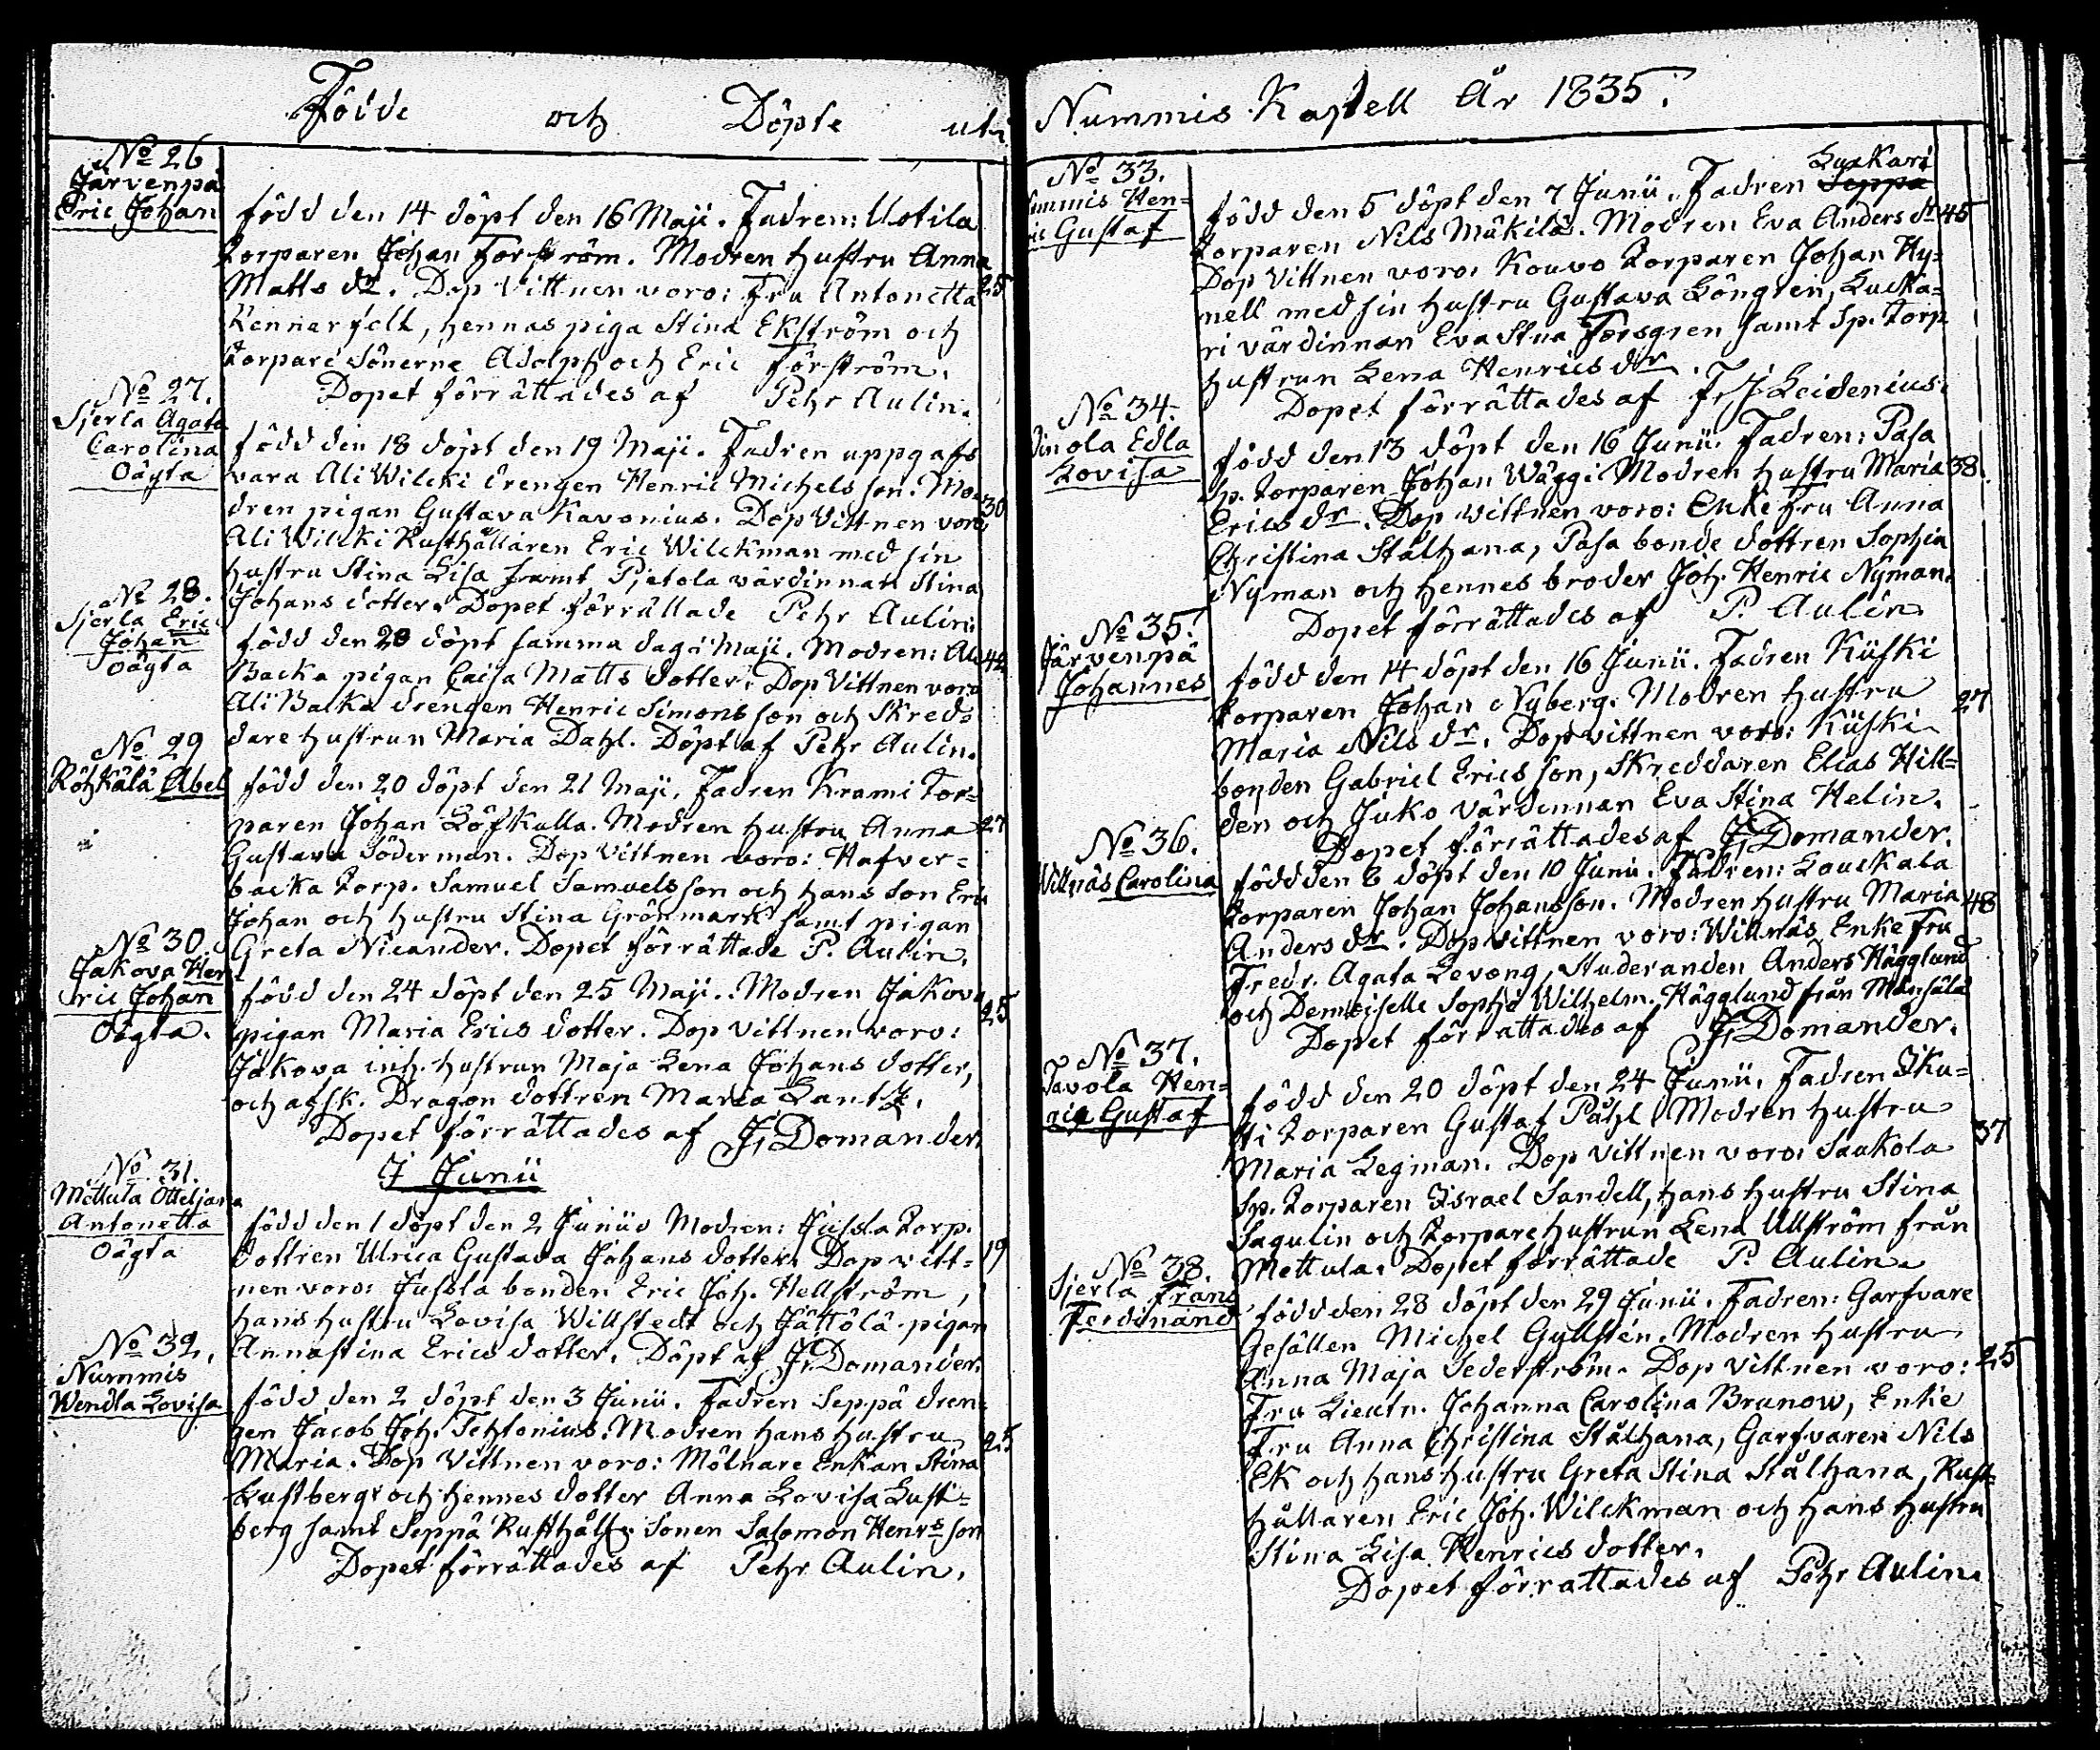 Födde och Döpte uti
No 26
Järvenpä
Eric Johan
född den 14 döpt den 16 Maji. Fadren: Uotila
torparen Johan Forström. Modren hustru Anna
Matts dr. Dop Vittnen voro: Fru Antonetta 25
Kennerfelt, hennas piga Stina Ekström och
torpare Sönerne Adolph och Eric Forström.
Dopet förrättades af Pehr Aulin.
No 27.
Sjerla Agata
Carolina
Oägta
född den 18 döpt den 19 Maji. Fadren uppgafs
vara Ali Wilcki drengen Henric Michels son. Mo-
dren pigan Gustava Kavonius. Dop Vittnen voro 30
Ali Wilcki Rusthållaren Eric Wilckman med sin
hustru Stina Lisa samt Pjetola värdinnan Stina
Johans dotter. Dopet förrättade Pehr Aulin.
No 28.
Sjerla Eric
Johan
oägta
född den 20 döpt samma dag i Maji. Modren: Ali 42
Backa pigan Caisa Matts dotter. Dop Vittnen voro
Ali Backa drengen Henric Simons son och Skred-
dare hustrun Maria Dahl. Döpt af Pehr Aulin.
No 29
Röhkälä Abel
född den 20 döpt den 21 Maji. Fadren Krami Tor-
paren Johan Löfkulla. Modren hustru Anna 27
Gustava Söderman. Dop Vittnen voro: Hafver-
backa torp. Samuel Samuelsson och hans son Eric
Johan och hustru Stina Grönmark samt pigan
Greta Nicander. Dopet förrättade P. Aulin.
No 30.
Jakova Hen-
ric Johan
Oägta.
född den 24 döpt den 25 Maji. Modren Jakova
pigan Maria Erics dotter. Dop vittnen voro: 25
Jakova inh. hustrun Maja Lena Johans dotter,
och afsk. Dragon dottren Maria Lantz.
Dopet förrättades af J. Domander.
I Junii
No 31.
Mettula Otteljana
Antonetta
Oägta
född den 1 döpt den 2 Junii Modren: Jussla Torp.
dottren Ulrica Gustava Johans dotter. Dop vitt- 19
nen voro: Jussla bonden Eric Joh. Hellström,
hans hustru Lovisa Willstedt och Jättölä pigan
Annastina Erics dotter. Döpt af J. Domander.
No 32.
Nummis
Wendla Lovisa
född den 2 döpt den 3 Junii. Fadren Seppä dren-
gen Jacob Joh. Tehlonius. Modren hans hustru 25
Maria. Dop Vittnen voro: Mölnare Enkan Stina
Lustberg och hennes dotter Anna Lovisa Lust-
berg samt Seppä Rusthåll. Sonen Salomon Henrs son
Dopet förrättades af Pehr Aulin.
Nummis Kapell År 1835.
No 33.
Nummis Hen-
ric Gustaf
Luckari
född den 5 döpt den 7 Junii. Fadren Seppä
torparen Nils Mäkilä. Modren Eva Anders dr 45
Dop Vittnen voro: Kouvo torparen Johan Hy-
nell med sin hustru Gustava Löngren, Lucka-
ri värdinnan Eva Stina Forsgren samt Sp. torp.
hustrun Lena Henrics dr.
Dopet förrättades af F. J. Leidenius.
No 34.
Edla
Lovisa
född den 13 döpt den 16 Junii. Fadren: Pasa
Sp. torparen Johan Wägg. Modren hustru Maria 38.
Erics dr. Dop vittnen voro: Enke Fru Anna
Christina Stålhana, Pasa bonde dottren Sophia
Nyman och hennes broder Joh. Henric Nyman.
Dopet förrättades af P. Aulin
No 35.
Järvenpä
Johannes
född den 14 döpt den 16 Junii. Fadren Kiiski
torparen Johan Nyberg. Modren hustru 27
Maria Nils dr. Dop vittnen voro: Kiiski
bonden Gabriel Erics son, Skreddaren Elias Hill-
den och Juko värdinnan Eva Stina Helin.
Dopet förrättades af J. Domander.
No 36.
Willnäs Carolina
född den 6 döpt den 10 Junii. Fadren: Louckala
torparen Johan Johansson. Modren hustru Maria 48
Anders dr. Dop vittnen voro: Willnäs Enke Fru
Fredr. Agata Levong, Studeranden Anders Hägglund
och Demoiselle Sophi Wilhelm. Hägglund från Mänsälä
Dopet förrättades af J. Domander.
No 37.
Tavola Hen-
ric Gustaf
född den 20 döpt den 24 Junii. Fadren Iku-
ti torparen Gustaf Påhl. Modren hustru 37
Maria Legman. Dop vittnen voro: Saukola
Sp. torparen Israel Sandell, hans hustru Stina
Sagulin och torpare hustrun Lena Ullström från
Mettula. Dopet förrättade P. Aulin.
No 38.
Sjerla Frans
Ferdinand
född den 28 döpt den 29 Junii. Fadren: Garfvare
Gesällen Michel Gyllstén. Modren hustru
Anna Maja Sederström. Dop Vittnen voro: 25
Fru Lieutn. Johanna Carolina Brunow, Enke
Fru Anna Christina Stålhana, Garfvaren Nils
Ek och hans hustru Greta Stina Stålhana, Rust-
hållaren Eric Joh. Wilckman och hans hustru
Stina Lisa Henrics dotter.
Dopet förrattades af Pehr Aulin.